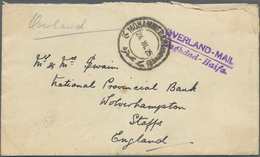 Overland
MOHAMMERAH
OVERLAND-MAIL
Baghdad-Haifa
Mr & Mrs Swain
National Provincial Bank
Wolverhampton
Staffs
England